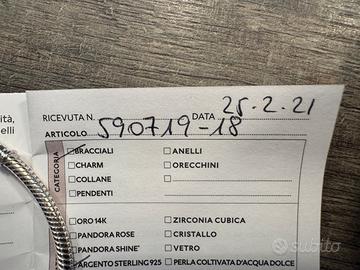 ità,
elli
RICEVUTA N. DATA 25.2.21
ARTICOLO 590719-18
CATEGORIA
BRACCIALI ANELLI
CHARM ORECCHINI
COLLANE
PENDENTI
ORO 14K ZIRCONIA CUBICA
PANDORA ROSE CRISTALLO
PANDORA SHINE VETRO
ARGENTO STERLING 925 PERLA COLTIVATA D'ACQUA DOLCE
subito